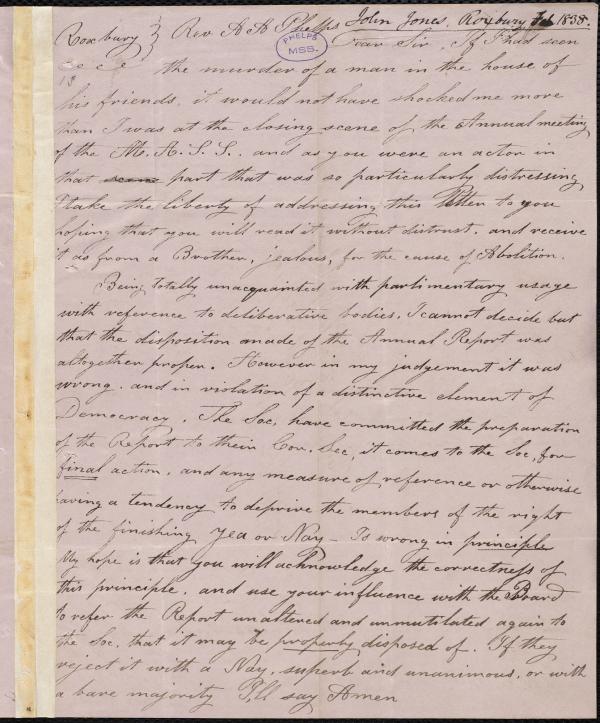 John Jones, Roxbury, 1838.
Roxbury } Rev. A A Phelps
PHELPS
MSS.
Dear Sir, If I had seen
13
the murder of a man in the house of
his friends, it would not have shocked me more
than I was at the closing scene of the Annual meeting
of the M. A. S. S. and as you were an actor in
that scene part that was so particularly distressing
I take the liberty of addressing this letter to you
hoping that you will read it without distrust, and receive
it as from a Brother, jealous, for the cause of Abolition.
Being totally unacquainted with parlimentary usage
with reference to deliberative bodies, I cannot decide but
that the disposition made of the Annual Report was
altogether proper. However in my judgement it was
wrong, and in violation of a distinctive element of
Democracy. The Soc. have committed the preparation
of the Report to their Cor. Sec, it comes to the Soc, for
final action, and any measure of reference or otherwise
having a tendency to deprive the members of the right
of the finishing Yea or Nay - Is wrong in principle
My hope is that you will acknowledge the correctness of
this principle, and use your influence with the Board
to refer the Report unaltered and unmutilated again to
the Soc. that it may be properly disposed of. If they
reject it with a Nay, superb and unanimous, or with
a bare majority I'll say Amen